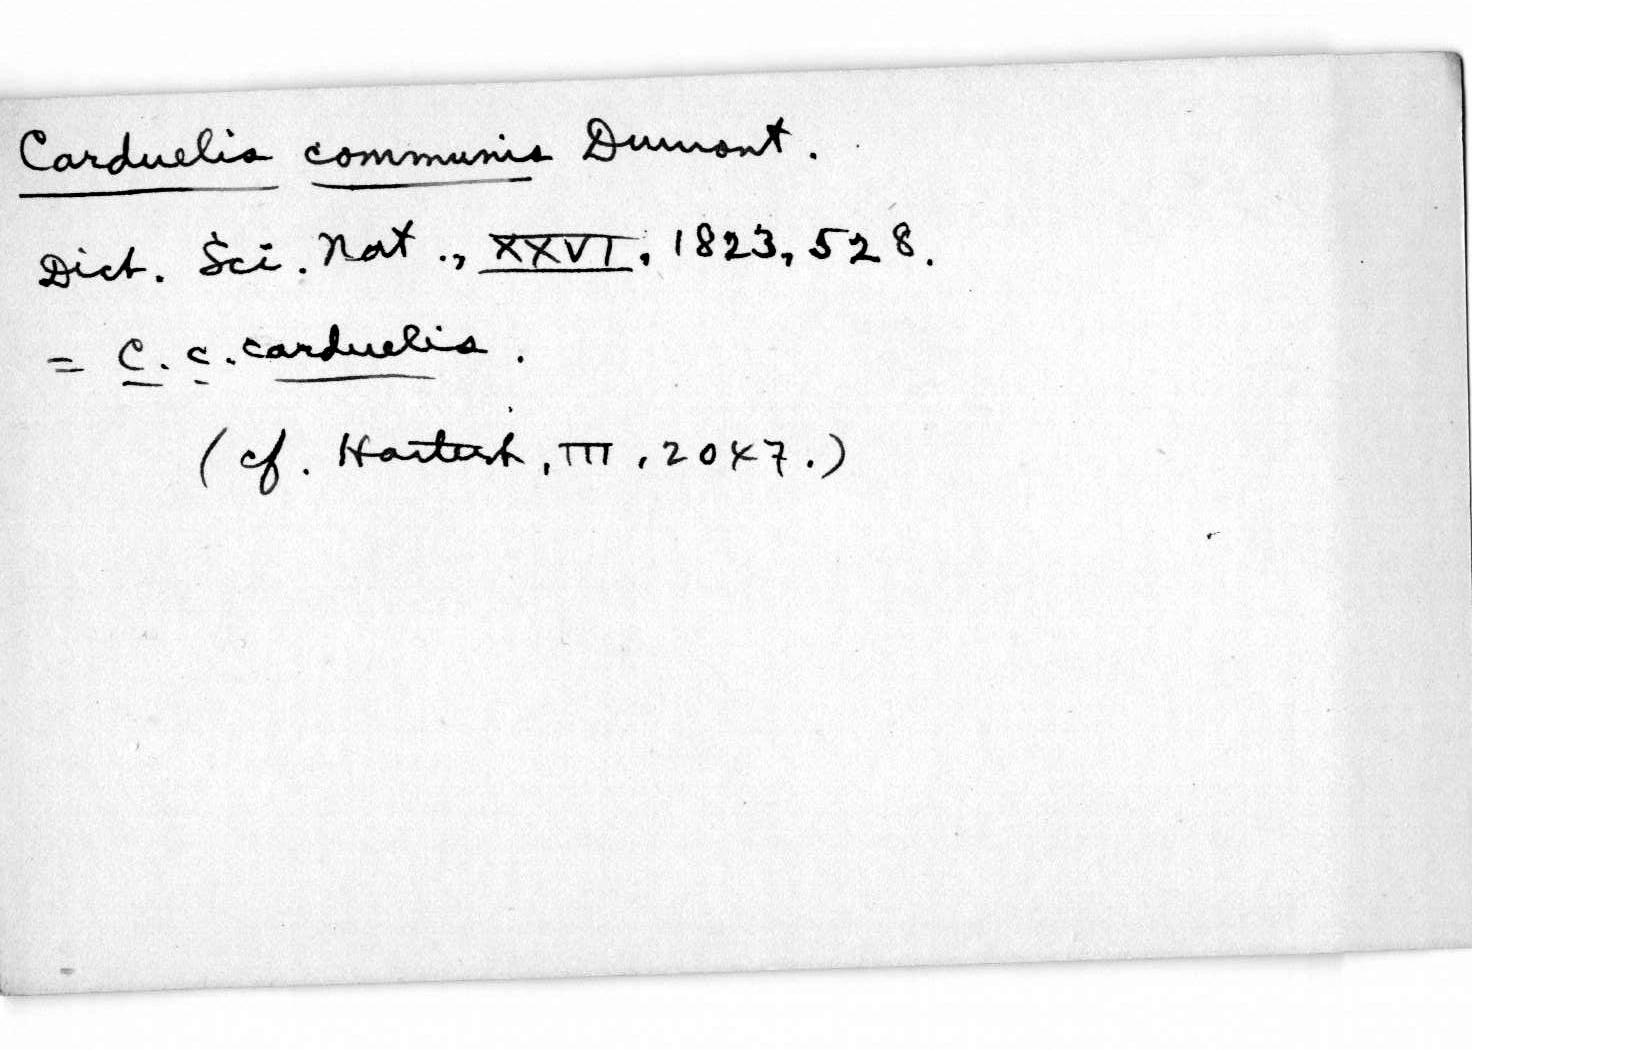 Carduelis communis Dumont.
Dict. Sci. Nat., XXVI, 1823, 528.
= C. c. carduelis.
(cf. Hartert, III, 2047.)